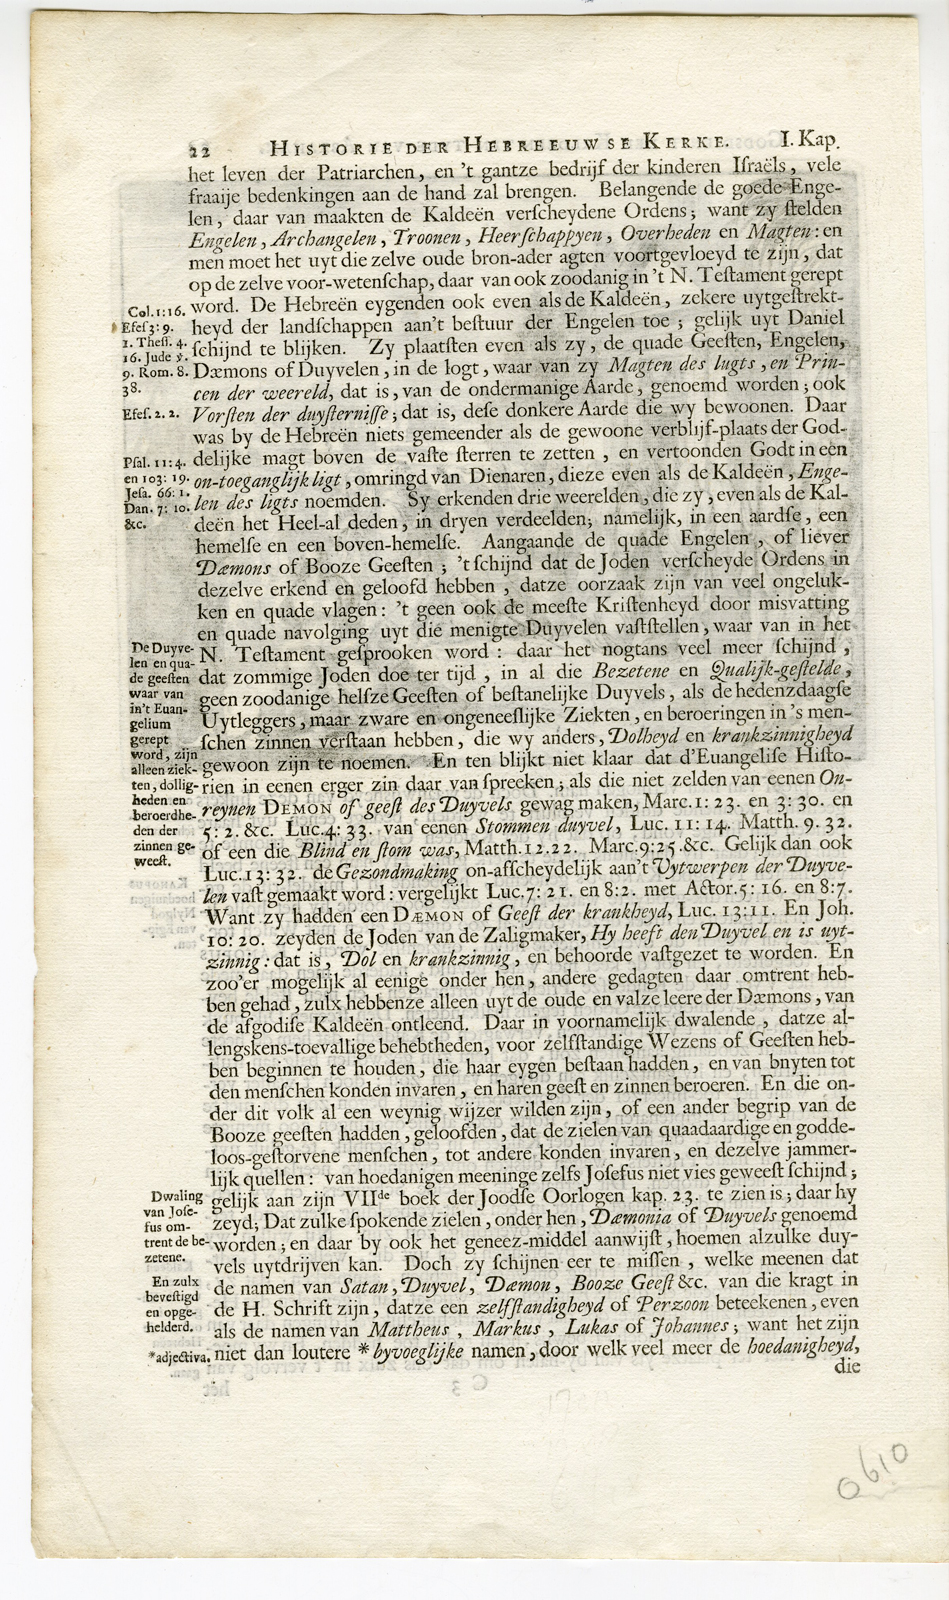 22 HISTORIE DER HEBREEUWSE KERKE. I. Kap.
het leven der Patriarchen, en 't gantze bedrijf der kinderen Iſraëls, vele
fraaije bedenkingen aan de hand zal brengen. Belangende de goede Enge-
len, daar van maakten de Kaldeën verſcheydene Ordens; want zy ſtelden
Engelen, Archangelen, Troonen, Heerſchappyen, Overheden en Magten: en
men moet het uyt die zelve oude bron-ader agten voortgevloeyd te zijn, dat
op de zelve voor-wetenſchap, daar van ook zoodanig in 't N. Teſtament gerept
word. De Hebreën eygenden ook even als de Kaldeën, zekere uytgeſtrekt-
heyd der landſchappen aan't beſtuur der Engelen toe; gelijk uyt Daniel
ſchijnd te blijken. Zy plaatſten even als zy, de quade Geeſten, Engelen,
Dæmons of Duyvelen, in de logt, waar van zy Magten des lugts, en Prin-
cen der weereld, dat is, van de ondermanige Aarde, genoemd worden; ook
Vorſten der duyſterniſſe; dat is, deſe donkere Aarde die wy bewoonen. Daar
was by de Hebreën niets gemeender als de gewoone verblijf-plaats der God-
delijke magt boven de vaſte ſterren te zetten, en vertoonden Godt in een
on-toeganglijk ligt, omringd van Dienaren, dieze even als de Kaldeën, Enge-
len des ligts noemden. Sy erkenden drie weerelden, die zy, even als de Kal-
deën het Heel-al deden, in dryen verdeelden; namelijk, in een aardſe, een
hemelſe en een boven-hemelſe. Aangaande de quade Engelen, of liever
Dæmons of Booze Geeſten; 't ſchijnd dat de Joden verſcheyde Ordens in
dezelve erkend en geloofd hebben, datze oorzaak zijn van veel ongeluk-
ken en quade vlagen: 't geen ook de meeſte Kriſtenheyd door misvatting
en quade navolging uyt die menigte Duyvelen vaſtſtellen, waar van in het
N. Teſtament geſprooken word: daar het nogtans veel meer ſchijnd,
dat zommige Joden doe ter tijd, in al die Bezetene en Qualijk-geſtelde,
geen zoodanige helſze Geeſten of beſtanelijke Duyvels, als de hedenzdaagſe
Uytleggers, maar zware en ongeneeſlijke Ziekten, en beroeringen in 's men-
ſchen zinnen verſtaan hebben, die wy anders, Dolheyd en krankzinnigheyd
gewoon zijn te noemen. En ten blijkt niet klaar dat d'Euangeliſe Hiſto-
rien in eenen erger zin daar van ſpreeken; als die niet zelden van eenen On-
reynen DEMON of geeſt des Duyvels gewag maken, Marc. 1: 23. en 3: 30. en
5: 2. &c. Luc. 4: 33. van eenen Stommen duyvel, Luc. 11: 14. Matth. 9. 32.
of een die Blind en ſtom was, Matth. 12. 22. Marc. 9: 25. &c. Gelijk dan ook
Luc. 13: 32. de Gezondmaking on-afſcheydelijk aan't Uytwerpen der Duyve-
len vaſt gemaakt word: vergelijkt Luc. 7: 21. en 8: 2. met Actor. 5: 16. en 8: 7.
Want zy hadden een DÆMON of Geeſt der krankheyd, Luc. 13: 11. En Joh.
10: 20. zeyden de Joden van de Zaligmaker, Hy heeft den Duyvel en is uyt-
zinnig: dat is, Dol en krankzinnig, en behoorde vaſtgezet te worden. En
zoo'er mogelijk al eenige onder hen, andere gedagten daar omtrent heb-
ben gehad, zulx hebbenze alleen uyt de oude en valze leere der Dæmons, van
de afgodiſe Kaldeën ontleend. Daar in voornamelijk dwalende, datze al-
lengskens-toevallige behebtheden, voor zelfſtandige Wezens of Geeſten heb-
ben beginnen te houden, die haar eygen beſtaan hadden, en van bnyten tot
den menſchen konden invaren, en haren geeſt en zinnen beroeren. En die on-
der dit volk al een weynig wijzer wilden zijn, of een ander begrip van de
Booze geeſten hadden, geloofden, dat de zielen van quaadaardige en godde-
loos-geſtorvene menſchen, tot andere konden invaren, en dezelve jammer-
lijk quellen: van hoedanigen meeninge zelfs Joſefus niet vies geweeſt ſchijnd;
gelijk aan zijn VIIde boek der Joodſe Oorlogen kap. 23. te zien is; daar hy
zeyd; Dat zulke ſpokende zielen, onder hen, Dæmonia of Duyvels genoemd
worden; en daar by ook het geneez-middel aanwijſt, hoemen alzulke duy-
vels uytdrijven kan. Doch zy ſchijnen eer te miſſen, welke meenen dat
de namen van Satan, Duyvel, Dæmon, Booze Geeſt &c. van die kragt in
de H. Schrift zijn, datze een zelfſtandigheyd of Perzoon beteekenen, even
als de namen van Mattheus, Markus, Lukas of Johannes; want het zijn
niet dan loutere * byvoeglijke namen, door welk veel meer de hoedanigheyd,
die
Col. 1: 16.
Efeſ 3: 9.
1. Theſſ. 4.
16. Jude ỳ.
9. Rom. 8.
38.
Efeſ. 2. 2.
Pſal. 11: 4.
en 103: 19.
Jeſa. 66: 1.
Dan. 7: 10.
&c.
De Duyve-
len en qua-
de geeſten
waar van
in't Euan-
gelium
gerept
word, zijn
alleen ziek-
ten, dollig-
heden en
beroerdhe-
den der
zinnen ge-
weeſt.
Dwaling
van Joſe-
fus om-
trent de be-
zetene.
En zulx
beveſtigd
en opge-
helderd.
*adjectiva.
0610